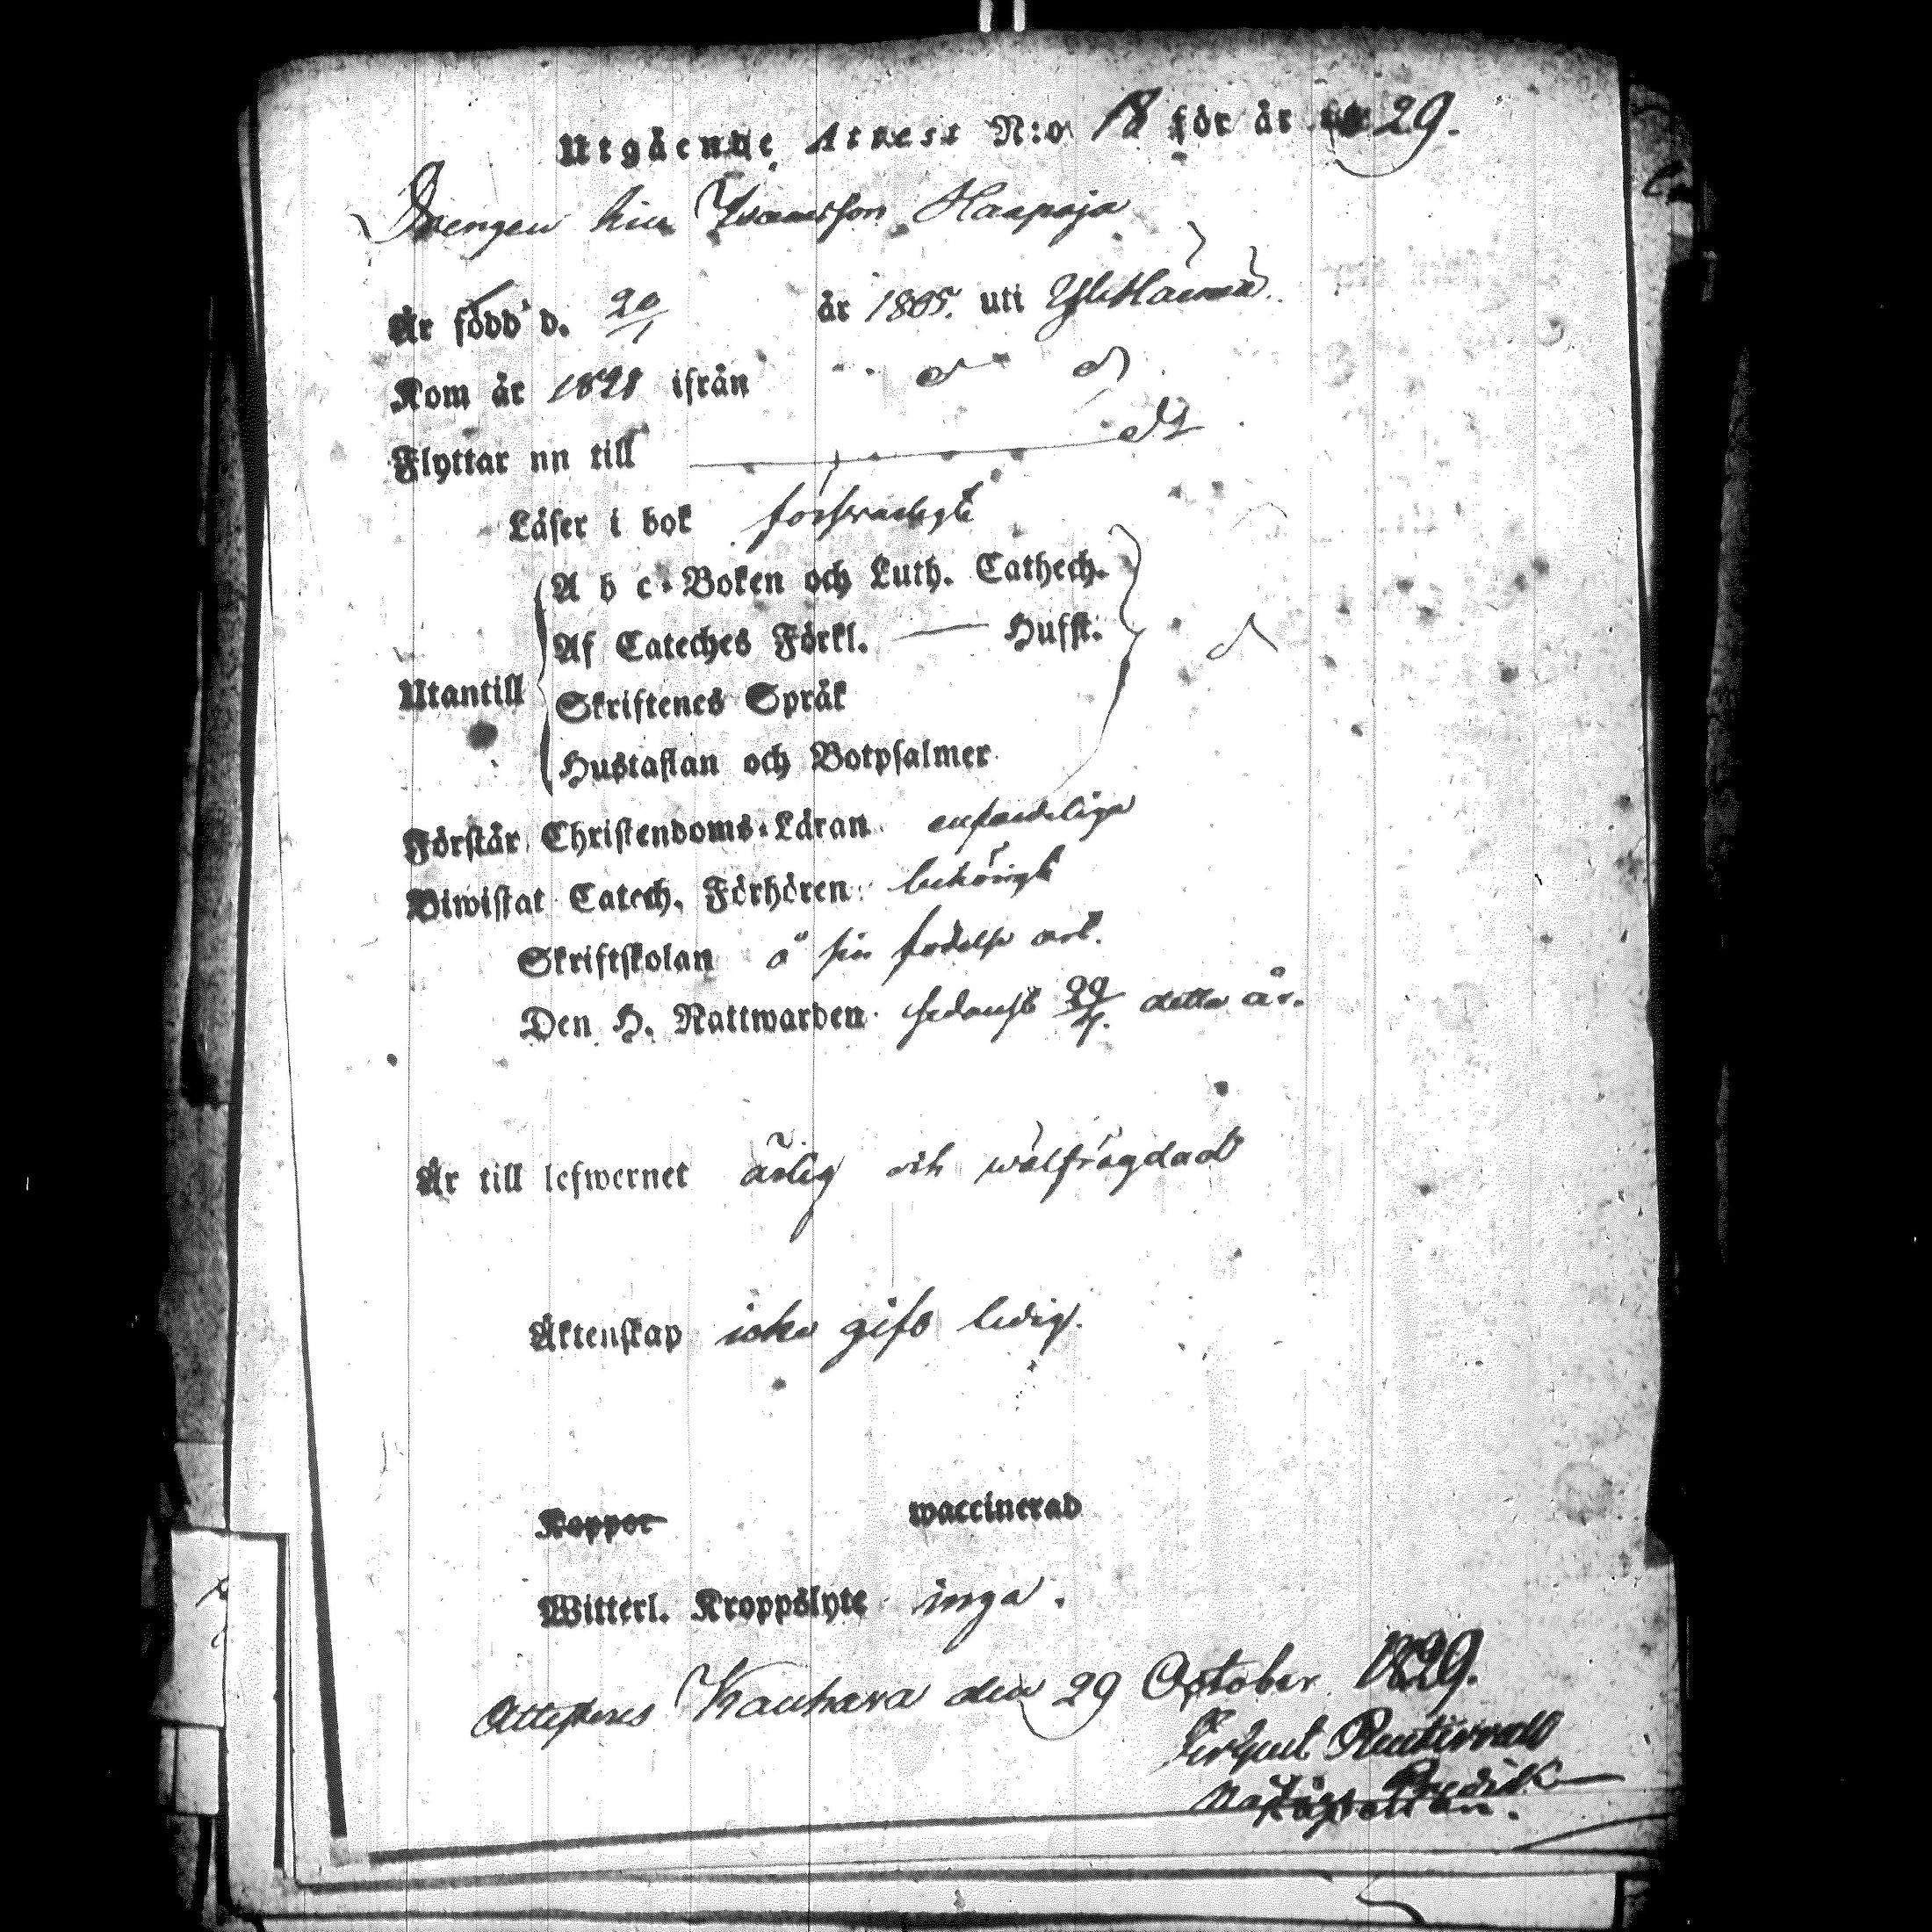 Utgående Attest N:o 18 för år 1829.
Drengen Isacsson Haapoja
Är född d. 20/1 år 1805. uti Ylihärmä
Kom år 1828 ifrån d d
Flyttar nu till d:o
Läser i bok försvarligt
A b c-Boken och Luth. Cathech.
Af Cateches Förkl. — Hufst.
Utantill
Skriftenes Språk
Hustaflan och Botpsalmer
Förstår Christendoms-Läran enfaldeliga
Biwistat Catech. Förhören behörigt
Skriftskolan å sin födelse ort.
Den H. Nattwarden sedanst detta år.
Är till lefwernet ärlig och wälfrägdad
Äktenskap icke gift ledig.
Koppor waccinerad
Witterl. Kroppslyte inga.
Attesteras Kauhava den 29 October 1829.